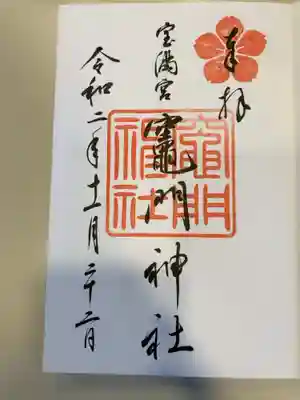 奉拝
宝満宮
竈門神社
竈門神社
令和二年十一月二十二日